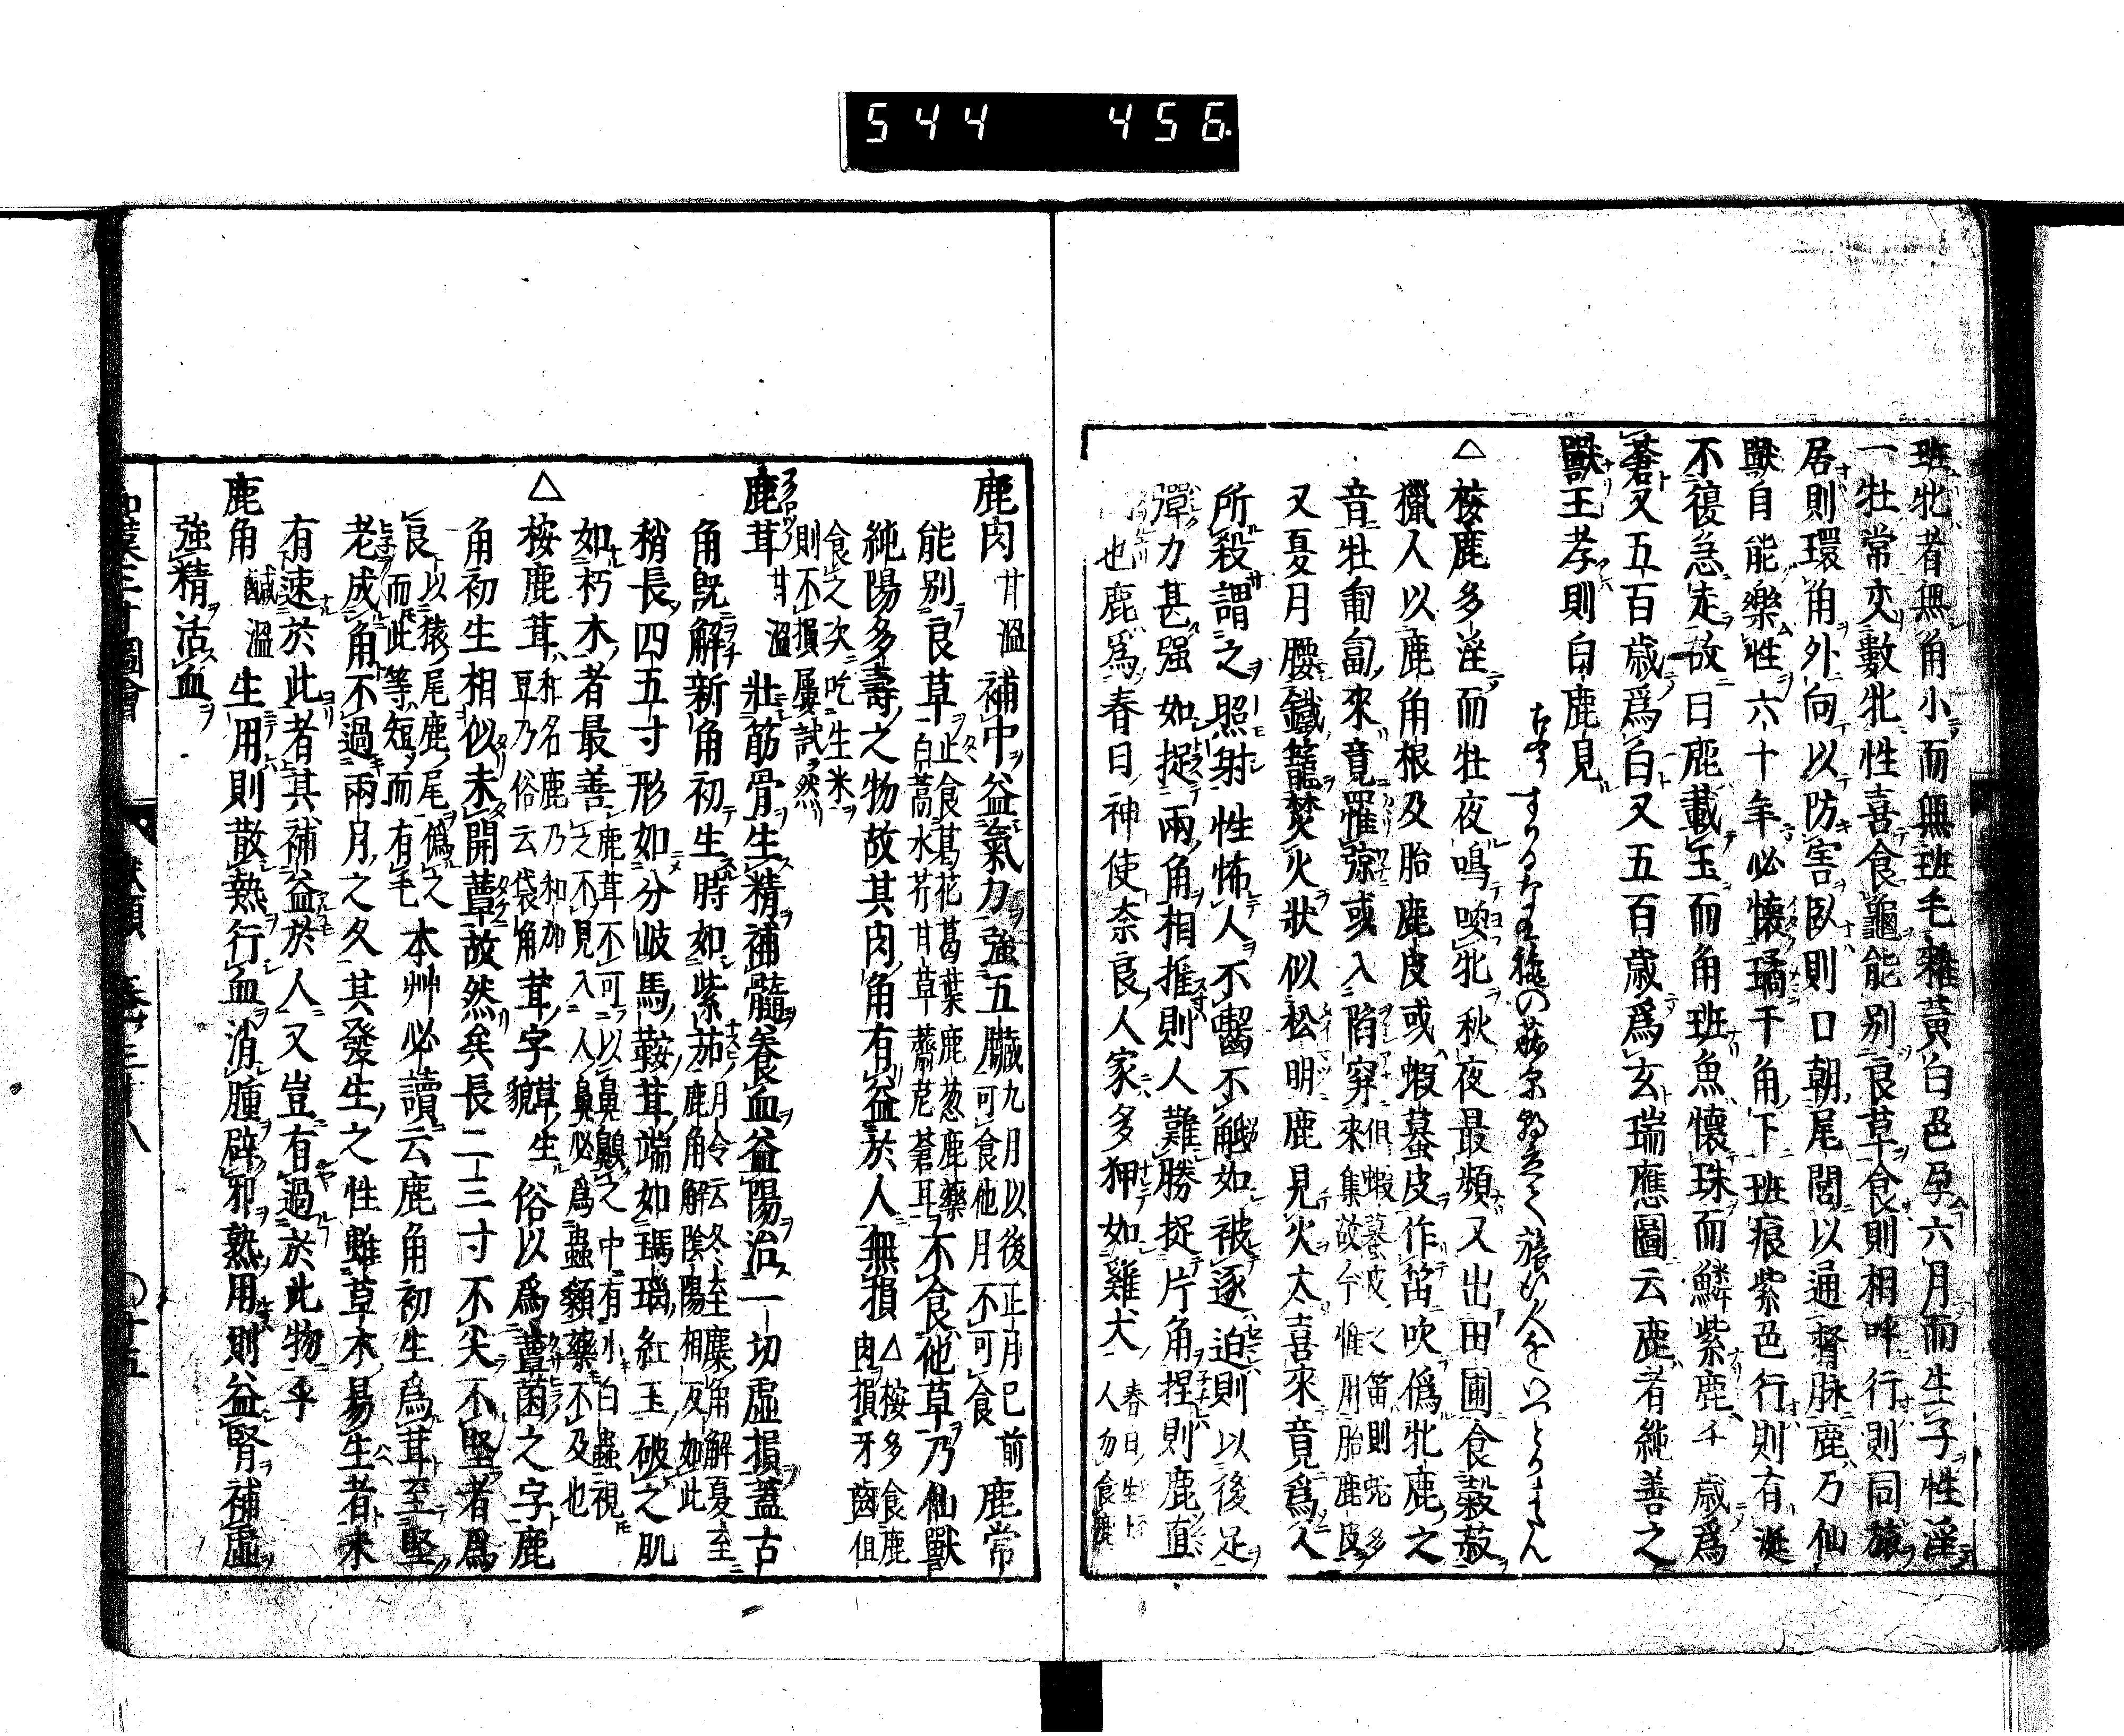 544 456
班牝者無角小而無班毛雜黃白色孕六月而生子性淫
一牡常交數牝性喜食龜能別良草食則相呼行則同旅
居則環角外向以防害臥則口朝尾閭以通督脉鹿乃仙
獸自能樂性六十年必懷璚于角下班痕紫色行則有涎
不復急走故曰鹿載玉而角班魚懷珠而鱗紫鹿千歳爲
蒼又五百歳爲白又五百歳爲玄瑞應圖云鹿者純善之
獸王孝則白鹿見
△桉鹿多淫而牡夜鳴喚牝秋夜最頻又出田圃食穀菽
獵人以鹿角根及胎鹿皮或蝦蟇皮作笛吹僞牝鹿之
音牡匍匐來竟罹弶或入陷穽但蝦蟇皮之笛則蛇多來集故今惟用胎鹿皮
又夏月腰鐵籠焚火狀似松明鹿見火太喜來竟爲人
所殺謂之照射性怖人不齧不觝如被逐迫則以後足
彈力甚强如捉兩角相推則人難勝捉片角捏則鹿直
也鹿爲春日神使奈良人家多狎如雞犬
鹿肉甘溫補中益氣力強五臟九月以後正月已前可食他月不可食鹿常
能別良草止食葛花葛葉鹿葱鹿藥白蒿水芹甘草薺苨蒼耳不食他草乃仙獸
純陽多壽之物故其肉角有益於人無損△桉多食鹿肉損牙齒但
食之次吃生米則不損屢試然
鹿茸甘溫壯筋骨生精補髓養血益陽治一切虛損蓋古
角旣解新角初生時如紫茄月令云冬至麋角解夏至鹿角解陰陽相反如此
稍長四五寸形如分岐馬鞍茸端如瑪瑙紅玉破之肌
如朽木者最善鹿茸不可以鼻齅之中有小白蟲視之不見入人鼻必爲蟲顙藥不及也
△桉鹿茸和名鹿乃和加豆乃俗云袋角茸字草生貌俗以爲蕈菌之字鹿
角初生相似未開蕈故然矣長二三寸不尖不堅者爲
良以猿尾鹿尾僞之而此等短而有毛本艸必讀云鹿角初生爲茸至堅
老成角不過兩月之久其發生之性雖草木易生者未
有速於此者其補益於人又豈有過於此物乎
鹿角鹹溫生用則散熱行血消腫辟邪熟用則益腎補虛
強精活血